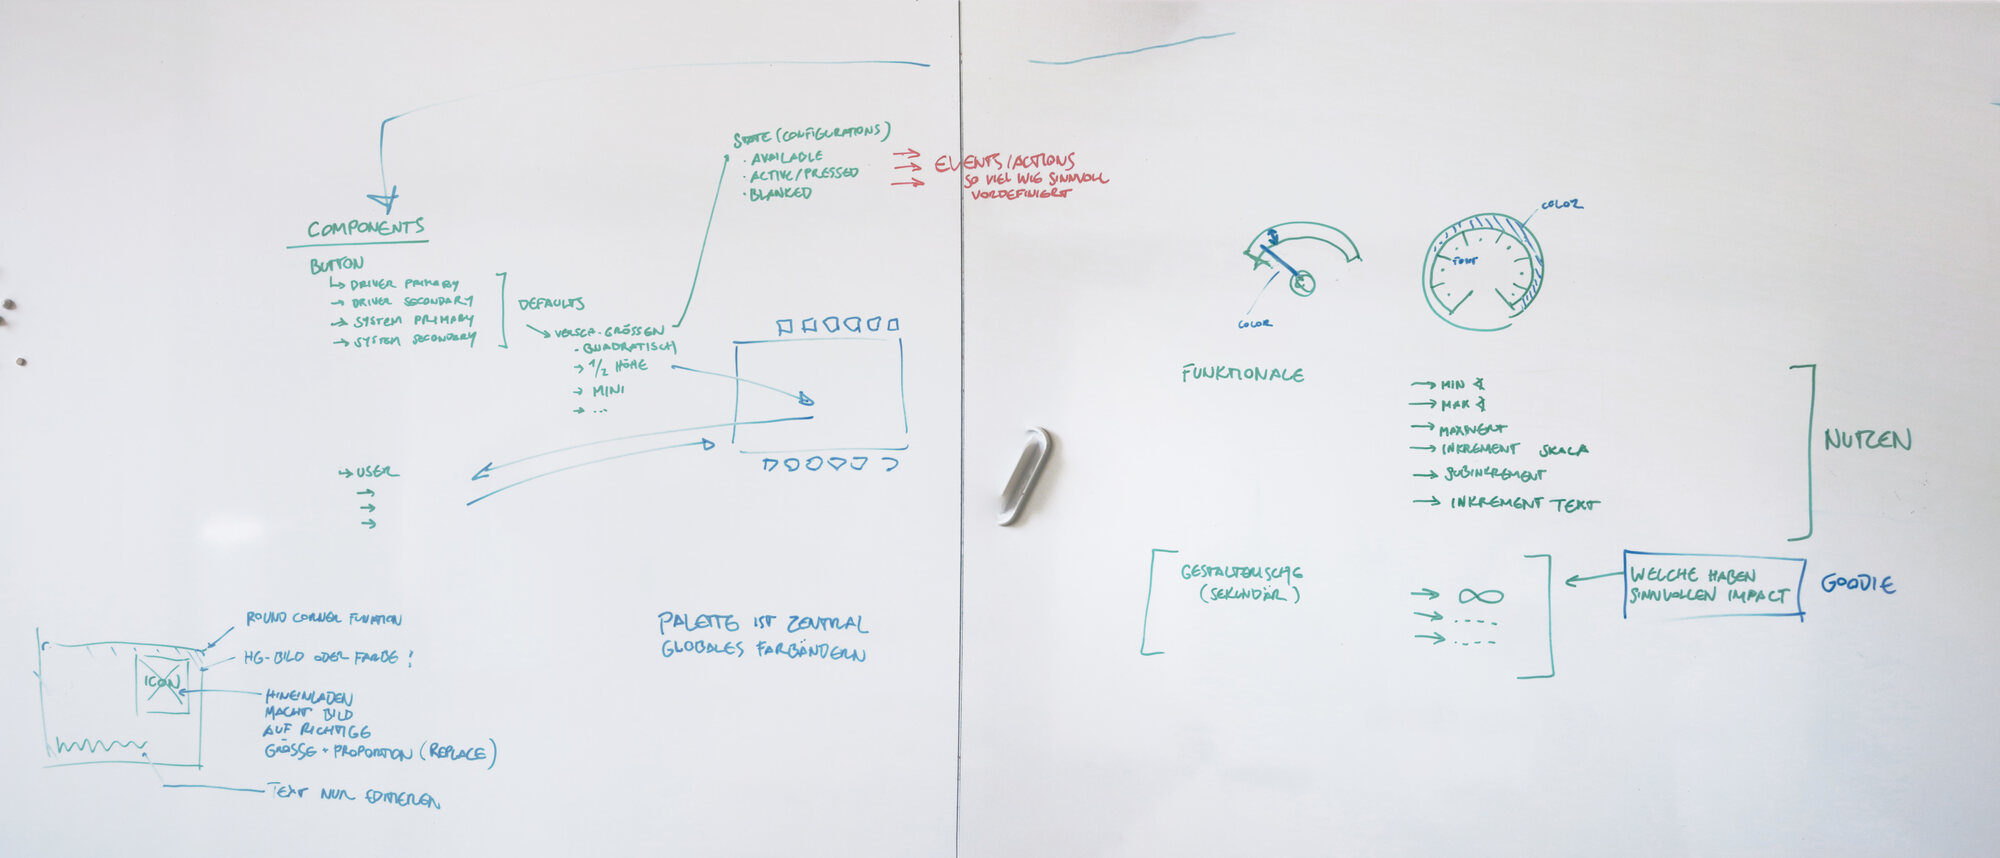 STATE (CONFIGURATIONS)
· AVAILABLE
· ACTIVE/PRESSED
· BLANKED
EVENTS/ACTIONS
SO VIEL WIE SINNVOLL
VORDEFINIERT
COMPONENTS
BUTTON
↳ DRIVER PRIMARY
→ DRIVER SECONDARY
→ SYSTEM PRIMARY
→ SYSTEM SECONDARY
DEFAULTS
→ VERSCH. GRÖSSEN
· QUADRATISCH
→ 1/2 HÖHE
→ MINI
→ ...
→ USER
→
→
→
ROUND CORNER FUNCTION
HG-BILD ODER FARBE!
ICON
HINEINLADEN
MACHT BILD
AUF RICHTIGE
GRÖSSE + PROPORTION (REPLACE)
TEXT NUR EDITIEREN
PALETTE IST ZENTRAL
GLOBALES FARBÄNDERN
COLOR
COLOR
FONT
FUNKTIONALE
→ MIN ∢
→ MAX ∢
→ MAXWERT
→ INKREMENT SKALA
→ SUBINKREMENT
→ INKREMENT TEXT
NUTZEN
GESTALTERISCHE
(SEKUNDÄR)
→ ∞
→ ----
→ ----
WELCHE HABEN
SINNVOLLEN IMPACT
GOODIE